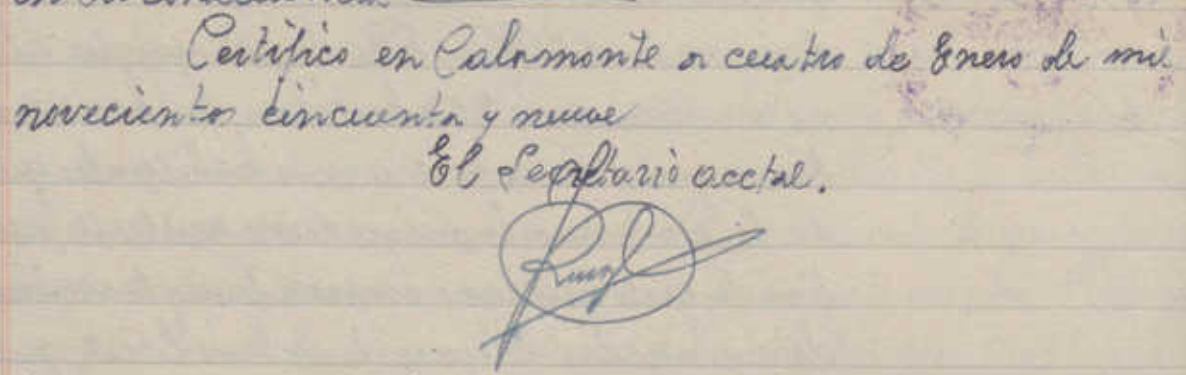 Certifico en Calamonte a cuatro de Enero de mil
novecientos cincuenta y nueve
El Secretario acctal.